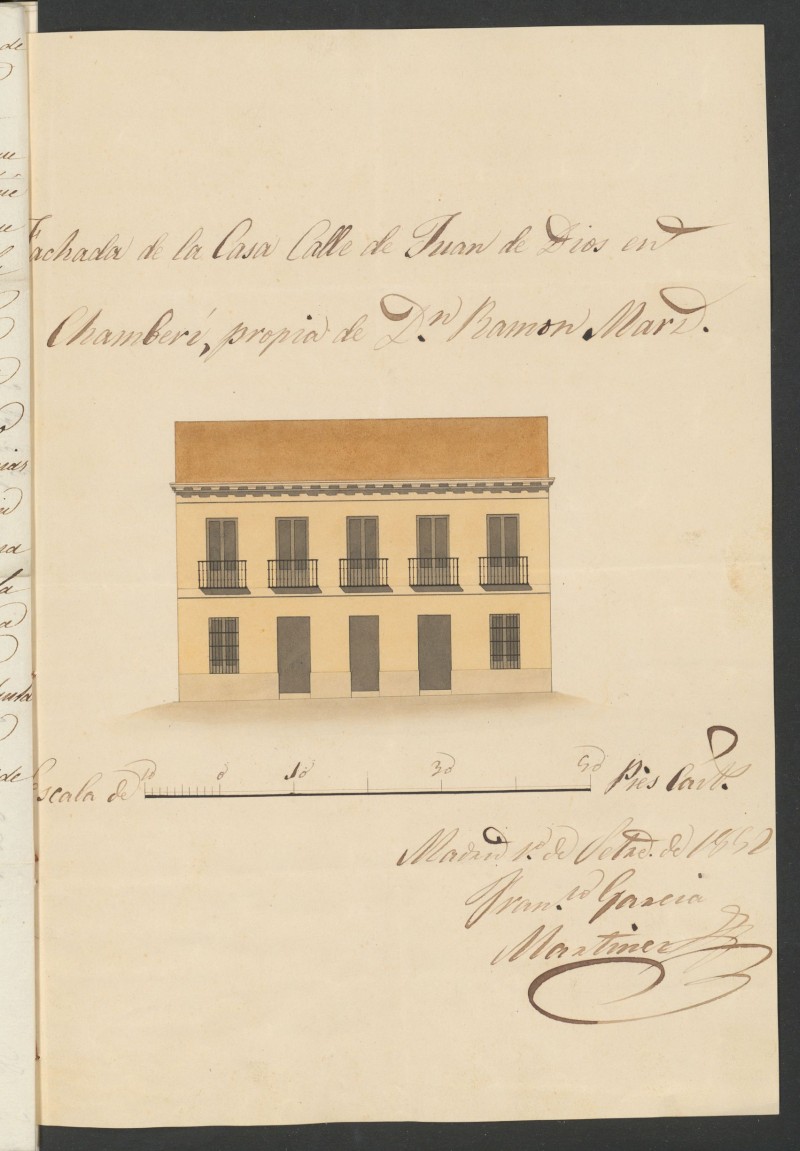 Fachada de la Casa Calle de Juan de Dios en
Chamberí, propia de Dn Ramon Mard.
Escala de 10 0 10 30 50 Pies Castn.
Madrid 1º de Setre. de 1852
Franco Garcia
Martinez
de